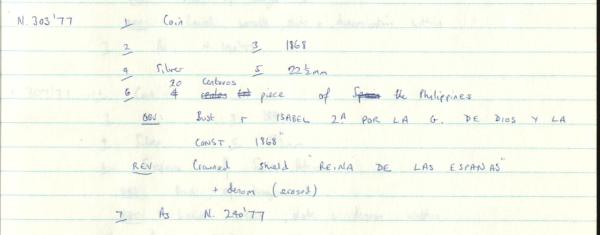 N. 303'77 1 Coin
2 3 1868
4 Silver 5 22½mm
20 Centavos
6 4 piece of the Philippines
OBV Bust r ISABEL 2.ª POR LA G. DE DIOS Y LA
CONST. 1868"
REV Crowned shield "REINA DE LAS ESPANAS"
+ denom (erased)
7 As N. 240'77